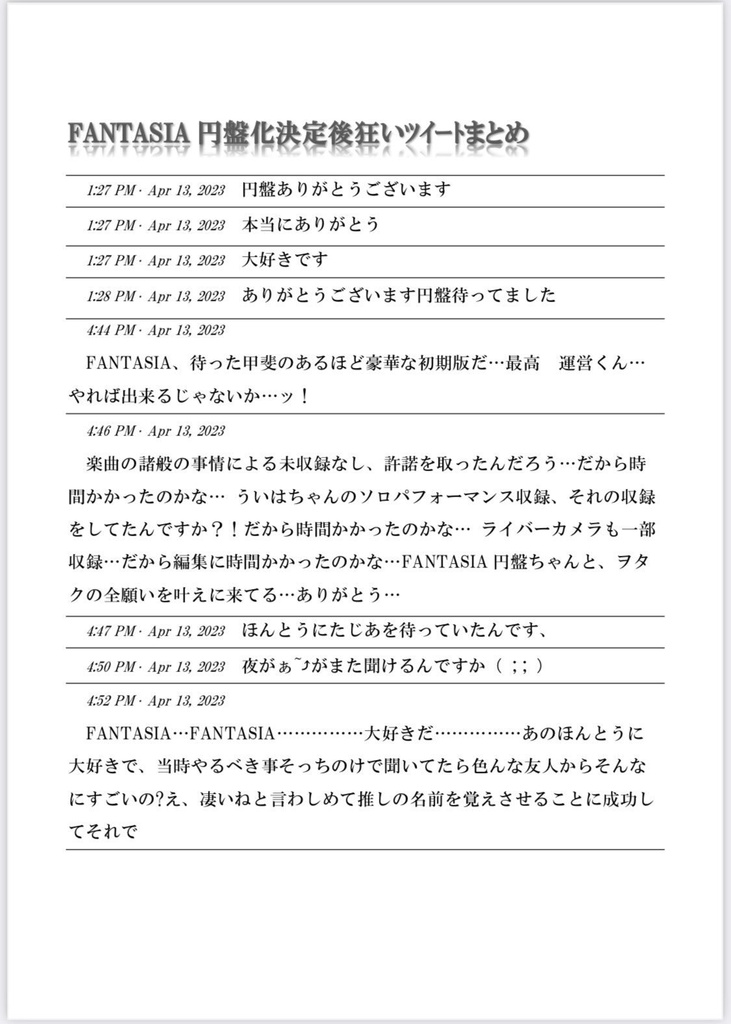 FANTASIA 円盤化決定後狂いツイートまとめ
1:27 PM · Apr 13, 2023 円盤ありがとうございます
1:27 PM · Apr 13, 2023 本当にありがとう
1:27 PM · Apr 13, 2023 大好きです
1:28 PM · Apr 13, 2023 ありがとうございます円盤待ってました
4:44 PM · Apr 13, 2023
FANTASIA、待った甲斐のあるほど豪華な初期版だ…最高　運営くん…
やれば出来るじゃないか…ッ！
4:46 PM · Apr 13, 2023
楽曲の諸般の事情による未収録なし、許諾を取ったんだろう…だから時
間かかったのかな… ういはちゃんのソロパフォーマンス収録、それの収録
をしてたんですか？！だから時間かかったのかな… ライバーカメラも一部
収録…だから編集に時間かかったのかな…FANTASIA 円盤ちゃんと、ヲタ
クの全願いを叶えに来てる…ありがとう…
4:47 PM · Apr 13, 2023 ほんとうにたじあを待っていたんです、
4:50 PM · Apr 13, 2023 夜がぁ~⤴がまた聞けるんですか（ ; ; ）
4:52 PM · Apr 13, 2023
FANTASIA…FANTASIA……………大好きだ……………あのほんとうに
大好きで、当時やるべき事そっちのけで聞いてたら色んな友人からそんな
にすごいの?え、凄いねと言わしめて推しの名前を覚えさせることに成功し
てそれで